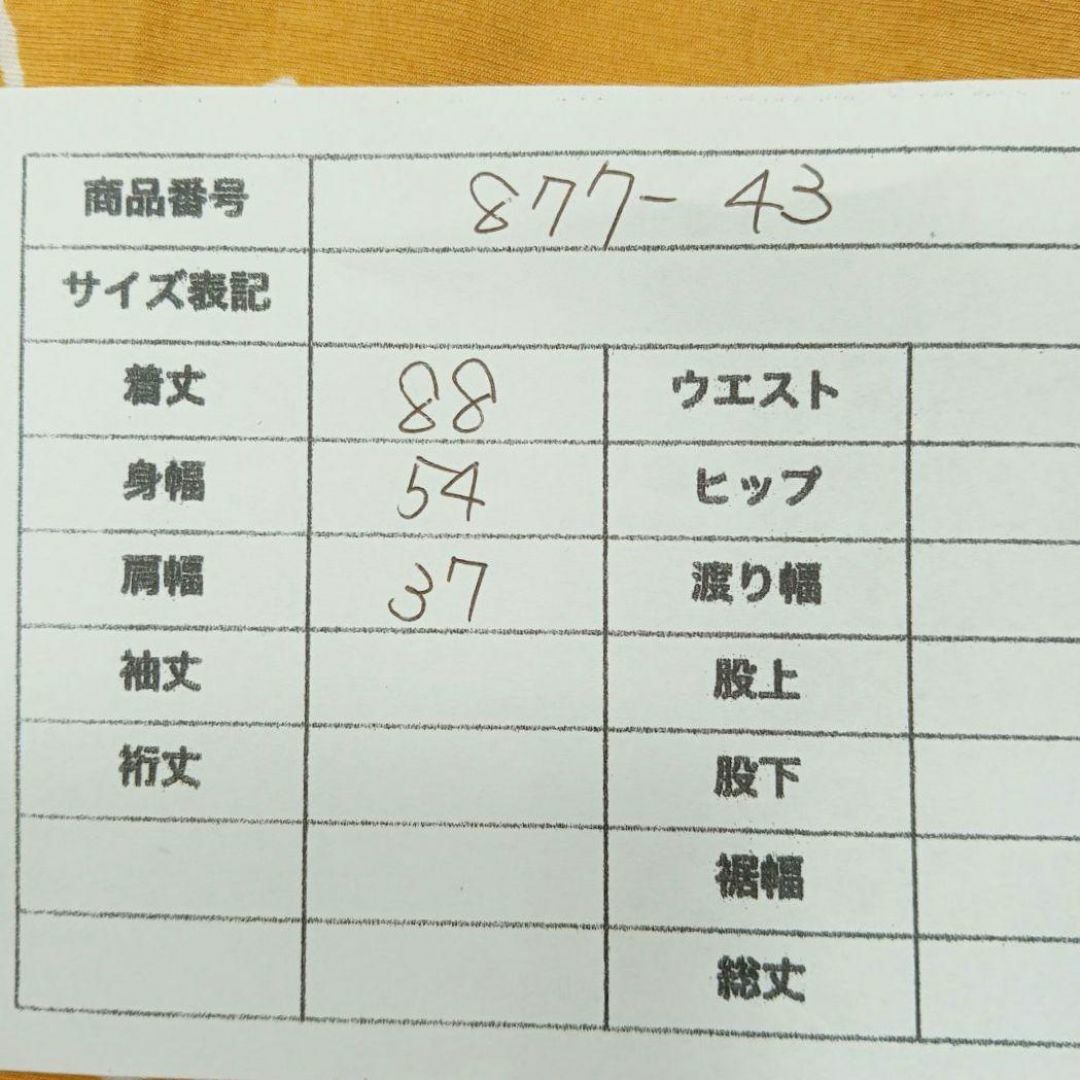 商品番号 877-43
サイズ表記
着丈 88 ウエスト
身幅 54 ヒップ
肩幅 37 渡り幅
袖丈 股上
裄丈 股下
裾幅
総丈